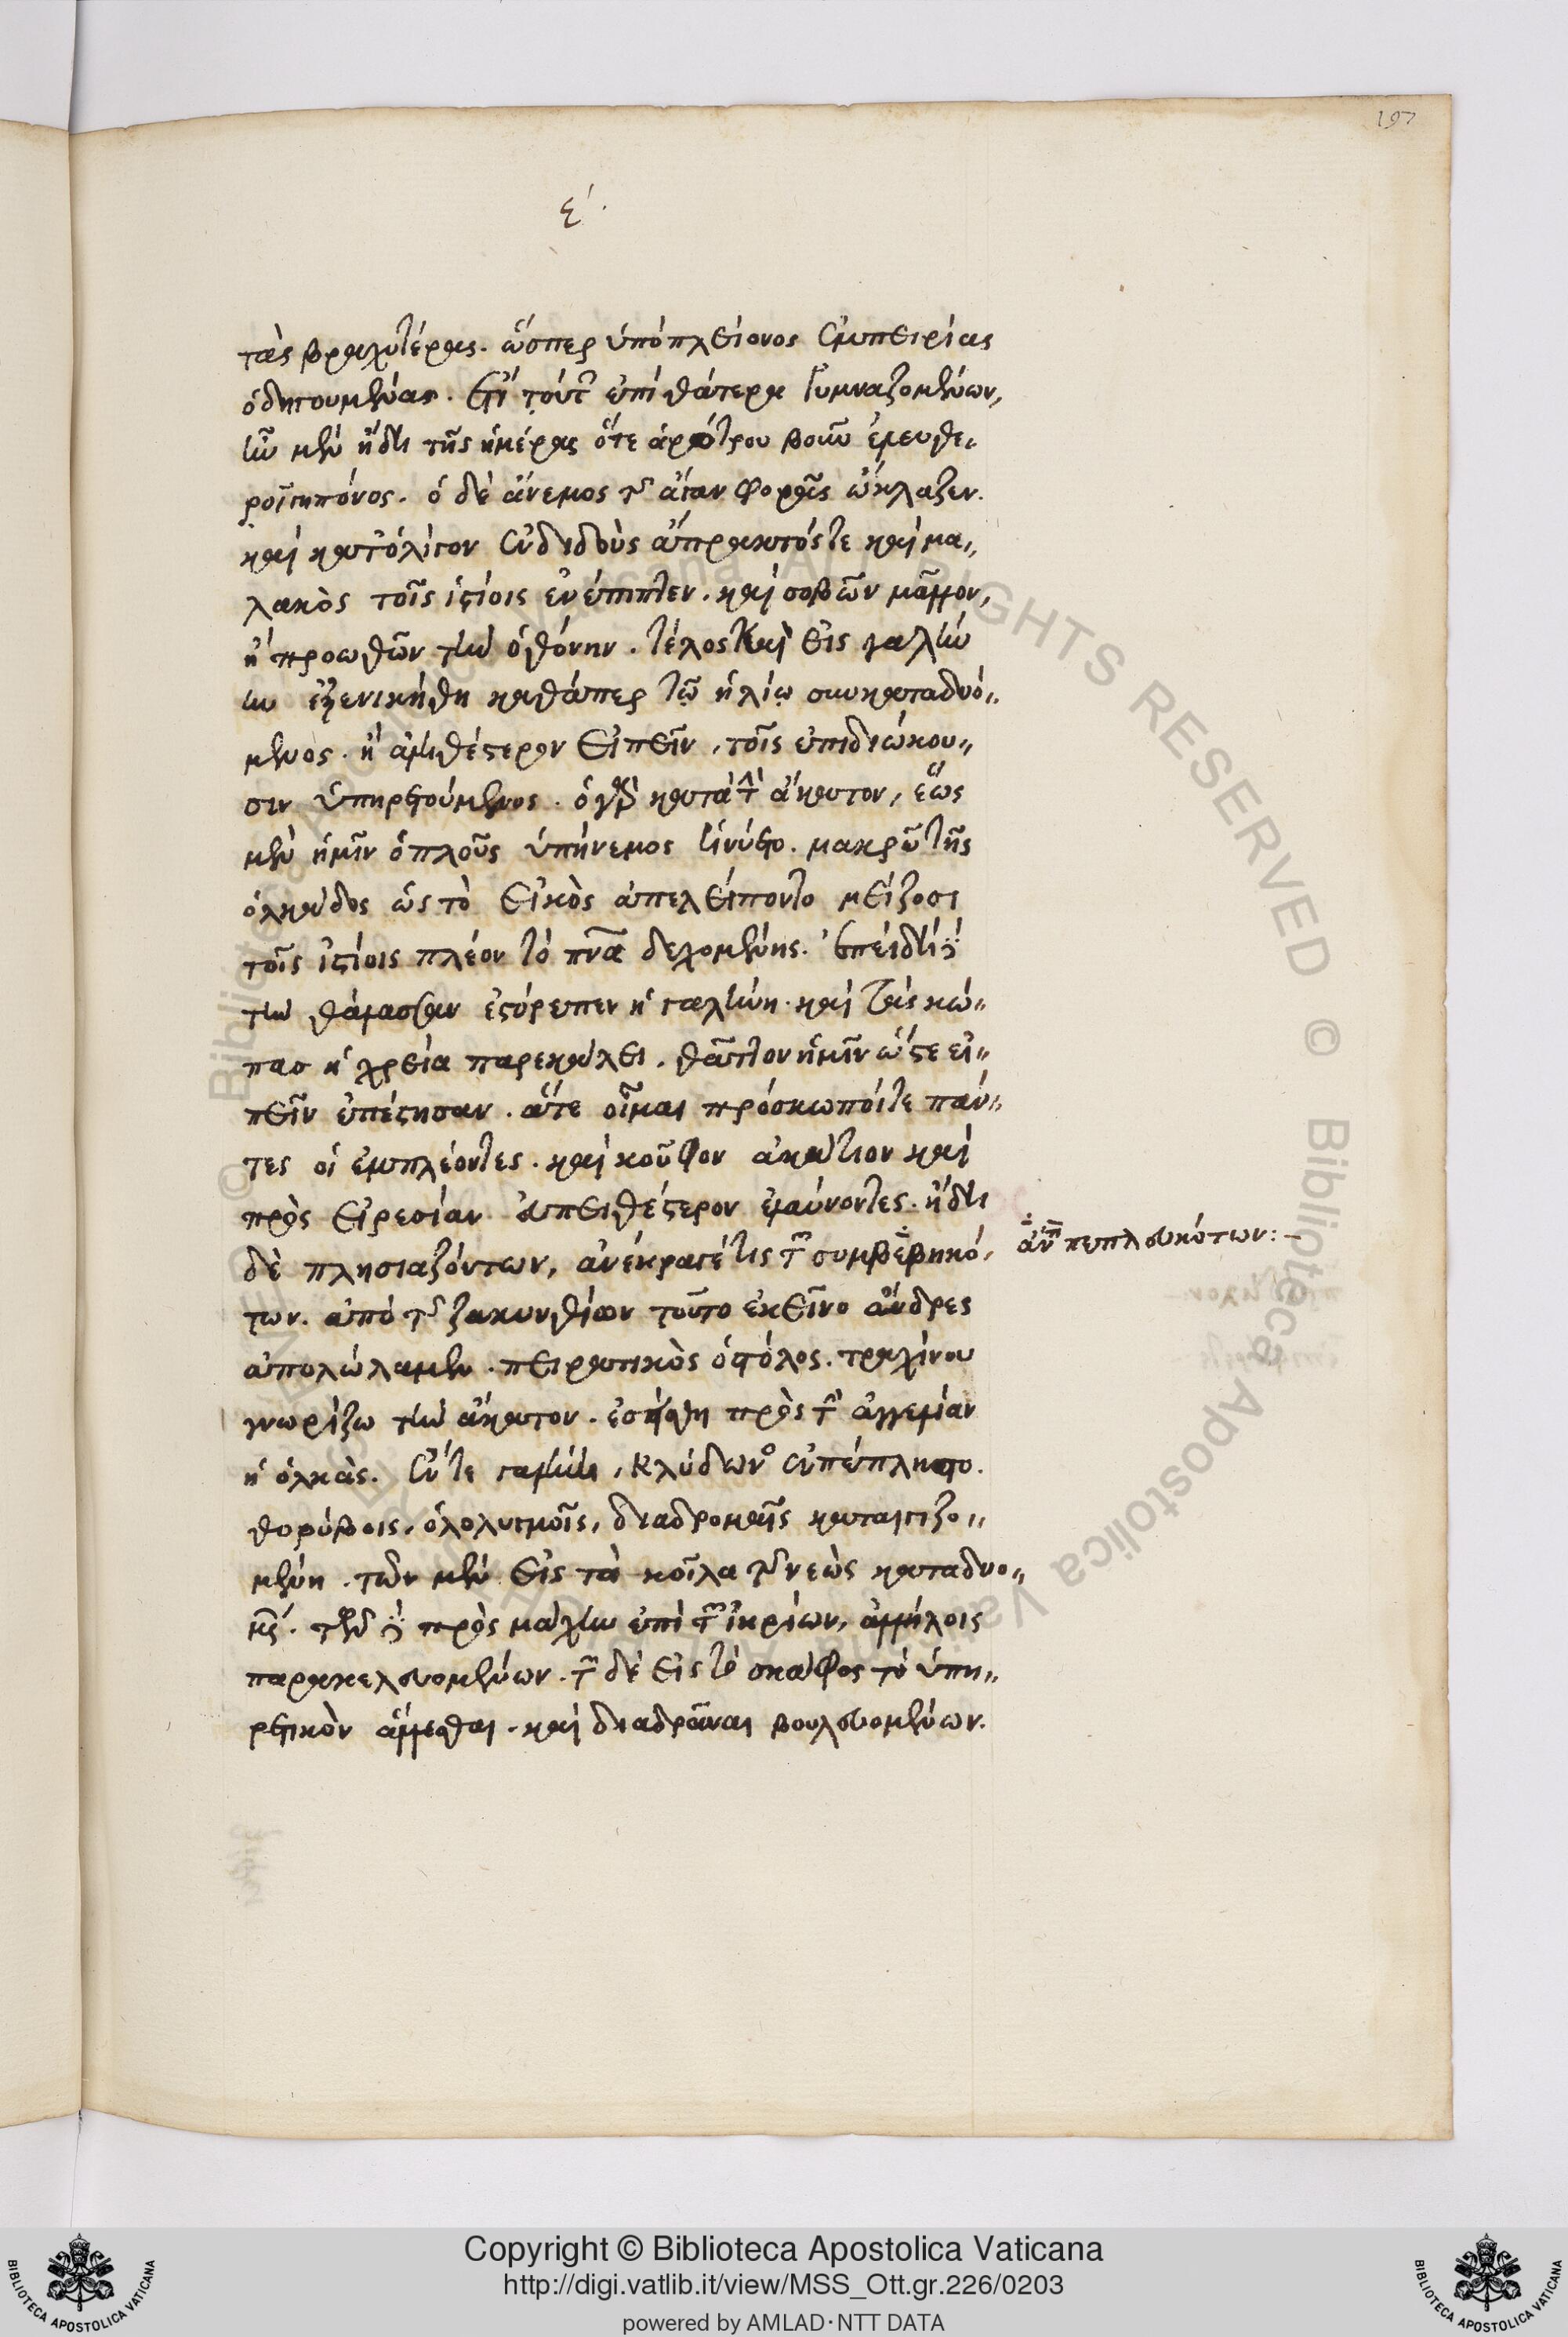 197
ε΄.
τὰς βραχυτέρας. ὥσπερ ὑπὸ πλείονος ἐμπειρίας
ὁδηγουμένας. ἔτι τούτ ἐπὶ θάτερα γυμναζομένων,
ἦν μὲν ἤδη τῆς ἡμέρας ὅτε ἀρότρου βοῦν ἐλευθε„
ροῖ γηπόνος. ὁ δὲ ἄνεμος τ ἄγαν φορᾶς ὤκλαζεν.
καὶ κατ' ὀλίγον ἐνδιδοὺς ἄπρακτός τε καὶ μα„
λακὸς τοῖς ἱστίοις ἐνέπιπτεν. καὶ σοβῶν μᾶλλον,
ἢ προωθῶν τὴν ὀθόνην. τέλος καὶ εἰς γαλήν
ην ἐξενικήθη καθάπερ τῷ ἡλίῳ συγκαταδυό„
μενος. ἢ ἀληθέστερον εἰπεῖν, τοῖς ἐπιδιώκου„
σιν ὑπηρετούμενος. ὁ γὰρ κατὰ τ ἄκατον, ἕως
μὲν ἡμῖν ὁ πλοῦς ὑπήνεμος ἠνύετο. μακρῷ τῆς
ὁλκάδος ὡς τὸ εἰκὸς ἀπελείποντο μείζοσι
τοῖς ἱστίοις πλέον τὸ πνα δεχομένης. ἐπειδὴ δὲ
τὴν θάλασσαν ἐστόρεσεν ἡ γαλήνη. καὶ τὰς κώ„
πας ἡ χρεία παρεκάλει. θᾶττον ἡμῖν ὥστε εἰ„
πεῖν ἐπέστησαν. ἅτε οἶμαι πρόσκωποί τε πάν„
τες οἱ ἐμπλέοντες. καὶ κοῦφον ἀκάτιον καὶ
πρὸς εἰρεσίαν εὐπειθέστερον ἐλαύνοντες. ἤδη
δὲ πλησιαζόντων, ἀνέκραγέ τις τ συμβεβηκό„
ἀντ πεπλευκότων:–
των. ἀπὸ τ ζακυνθίων τοῦτο ἐκεῖνο ἄνδρες
ἀπολώλαμεν. πειρατικὸς ὁ στόλος. τραχίνου
γνωρίζω τὴν ἄκατον. ἐσείσθη πρὸς τ ἀγγελίαν
ἡ ὁλκὰς. ἔν τε γαλήνῃ, κλύδωνο ἐπέπληστο.
θορύβοις, ὀλολυγμοῖς, διαδρομαῖς καταιγιζο„
μένη. τῶν μὲν εἰς τὰ κοῖλα τ νεὼς καταδυο„
μέ. τῶν δὲ πρὸς μάχην ἐπὶ τ ἰκρίων, ἀλλήλοις
παρακελευομένων. τ δὲ εἰς τὸ σκάφος τὸ ὑπη„
ρετικὸν ἅλλεσθαι. καὶ διαδρᾶναι βουλευομένων.
Copyright © Biblioteca Apostolica Vaticana
http://digi.vatlib.it/view/MSS_Ott.gr.226/0203
powered by AMLAD·NTT DATA